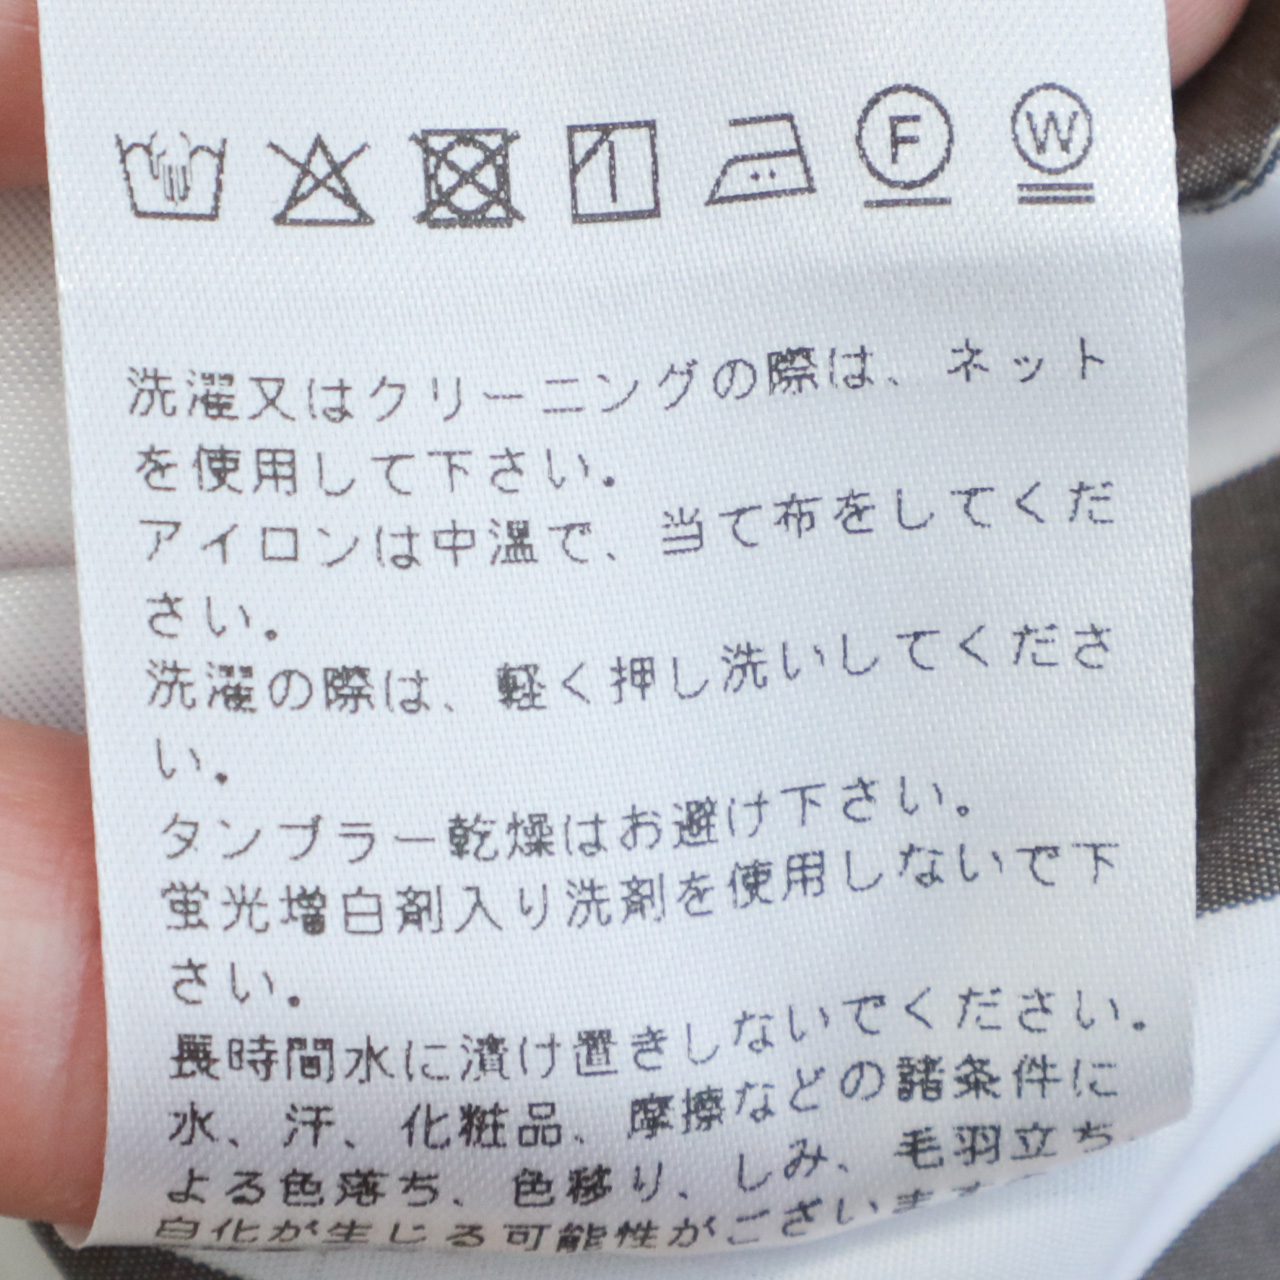 F W
洗濯又はクリーニングの際は、ネット
を使用して下さい。
アイロンは中温で、当て布をしてくだ
さい。
洗濯の際は、軽く押し洗いしてくださ
い。
タンブラー乾燥はお避け下さい。
蛍光増白剤入り洗剤を使用しないで下
さい。
長時間水に漬け置きしないでください。
水、汗、化粧品、摩擦などの諸条件に
よる色落ち、色移り、しみ、毛羽立ち、
白化が生じる可能性がございます